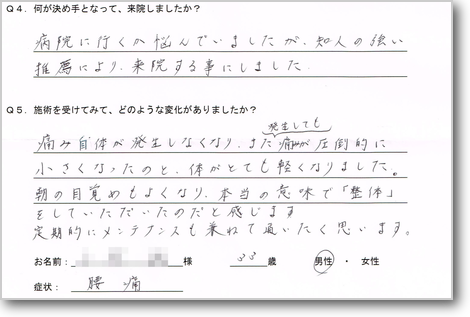 Q4．何が決め手となって、来院しましたか？
病院に行くか悩んでいましたが、知人の強い
推薦により、来院する事にしました。
Q5．施術を受けてみて、どのような変化がありましたか？
発生しても
痛み自体が発生しなくなり、また痛みが圧倒的に
小さくなったのと、体がとても軽くなりました。
朝の目覚めもよくなり、本当の意味で「整体」
をしていただいたのだと感じます
定期的にメンテナンスも兼ねて通いたく思います。
お名前： 様 33 歳 男性 ・ 女性
症状： 腰痛